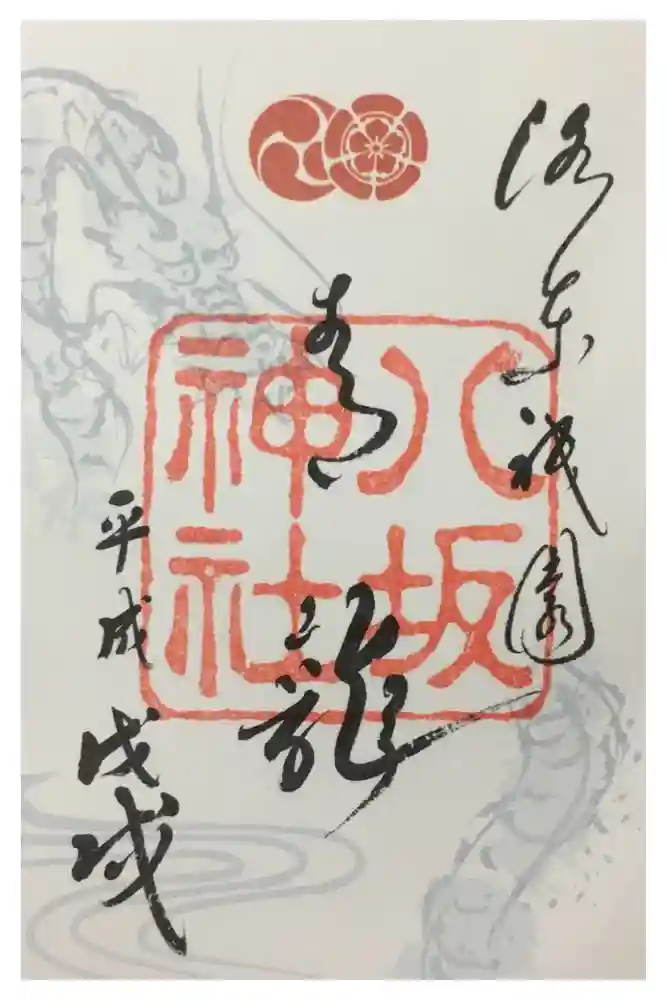 洛東祇園
青龍
八坂
神社
平成戊戌